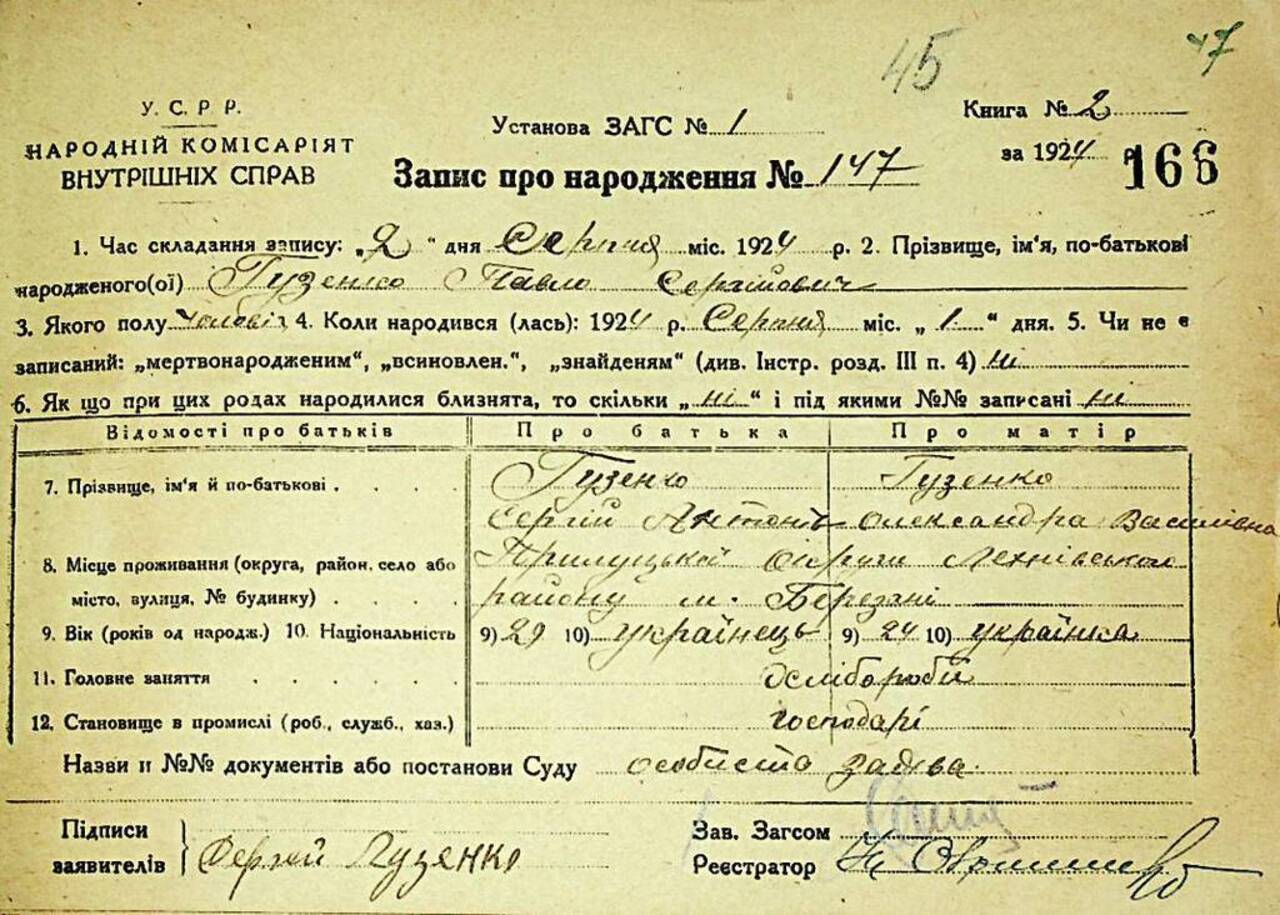 45 47
У. С. Р. Р.
НАРОДНІЙ КОМІСАРІЯТ
ВНУТРІШНІХ СПРАВ
Установа ЗАГС № 1
Запис про народження № 147
Книга № 2
за 1924 166
1. Час складання запису: „2“ дня Серпня міс. 1924 р. 2. Прізвище, ім'я, по-батькові
народженого(ої) Гузенко Павло Сергійович
3. Якого полу Чоловіч 4. Коли народився (лась): 1924 р. Серпня міс. „1.“ дня. 5. Чи не є
записаний: „мертвонародженим“, „всиновлен.“, „знайденям“ (див. Інстр. розд. III п. 4) ні
6. Як що при цих родах народилися близнята, то скільки „ні“ і під якими №№ записані ні
Відомості про батьків Про батька Про матір
7. Прізвище, ім'я й по-батькові . . . . Гузенко Гузенко
Сергій Антонів Олександра Василівна
8. Місце проживання (округа, район, село або Прилуцької Округи
місто, вулиця, № будинку) . . . . району м. Березані
9. Вік (років од народж.) 10. Національність 9) 29 10) українець 9) 24 10) українка
11. Головне заняття . . . . . хлібороби
12. Становище в промислі (роб., служб., хаз.) господарі
Назви и №№ документів або постанови Суду особиста заява.
Підписи
заявителів Сергій Гузенко
Зав. Загсом
Реєстратор